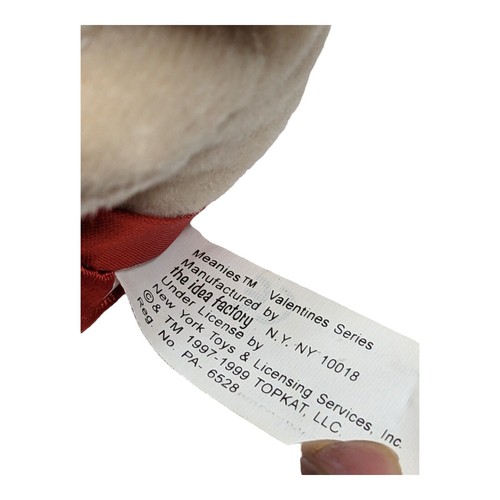 Meanies™ Valentines Series
Manufactured by
the idea factory N.Y. NY 10018
Under License by
New York Toys & Licensing Services, Inc.
© & TM 1997-1999 TOPKAT, LLC.
Reg. No. PA- 6528